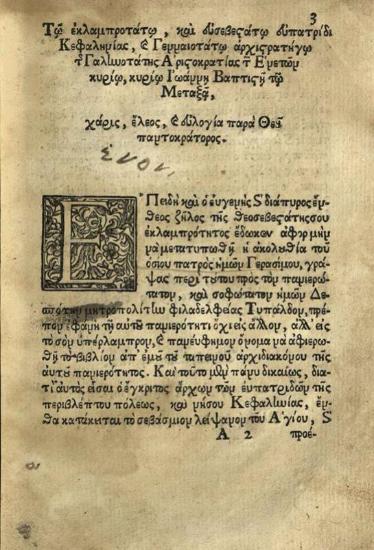 3
Τῷ ἐκλαμπροτάτῳ, καὶ εὐσεβεστάτῳ εὐπατρίδι
Κεφαληνίας, & Γενναιοτάτῳ ἀρχιστρατήγῳ
τ͂ Γαληνοτάτης Ἀριστοκρατίας τ͂ Ἐνετῶν
κυρίῳ, κυρίῳ Ἰωάννῃ Βαπτιστῇ τῷ
Μεταξᾷ,
χάρις, ἔλεος, & εὐλογία παρὰ Θεοῦ
παντοκράτορος.
ΕΠειδὴ καὶ ὁ εὐγενὴς & διάπυρος ἔν-
θεος ζῆλος τῆς θεοσεβεστάτης σου
ἐκλαμπρότητος ἔδωκεν ἀφορμὴν
νὰ μετατυπωθῇ ἡ ἀκολουθία τοῦ
ὁσίου πατρὸς ἡμῶν Γερασίμου, γρά-
ψας περὶ τούτου πρὸς τὸν πανιερώ-
τατον, καὶ σοφώτατον ἡμῶν Δε-
σπότην μητροπολίτην φιλαδελφείας Τυπάλδον, πρέ-
πον ἐφάνη τῇ αὐτοῦ πανιερότητι ὄχι εἰς ἄλλον, ἀλλ' εἰς
τὸ σὸν ὑπέρλαμπρον, & πανεύφημον ὄνομα νὰ ἀφιερω-
θῇ τὸ βιβλίον ἀπ' ἐμοῦ τοῦ ταπεινοῦ ἀρχιδιακόνου τῆς
αὐτοῦ πανιερότητος. Καὶ τοῦτο μὲν πάνυ δικαίως, δια-
τὶ αὐτὸς εἶσαι ὁ ἔγκριτος ἄρχων τῶν εὐπατριδῶν τῆς
περιβλέπτου πόλεως, καὶ νήσου Κεφαλληνίας, ἔν-
θα κατάκειται τὸ σεβάσμιον λείψανον τοῦ Ἁγίου, &
A 2 προέ-